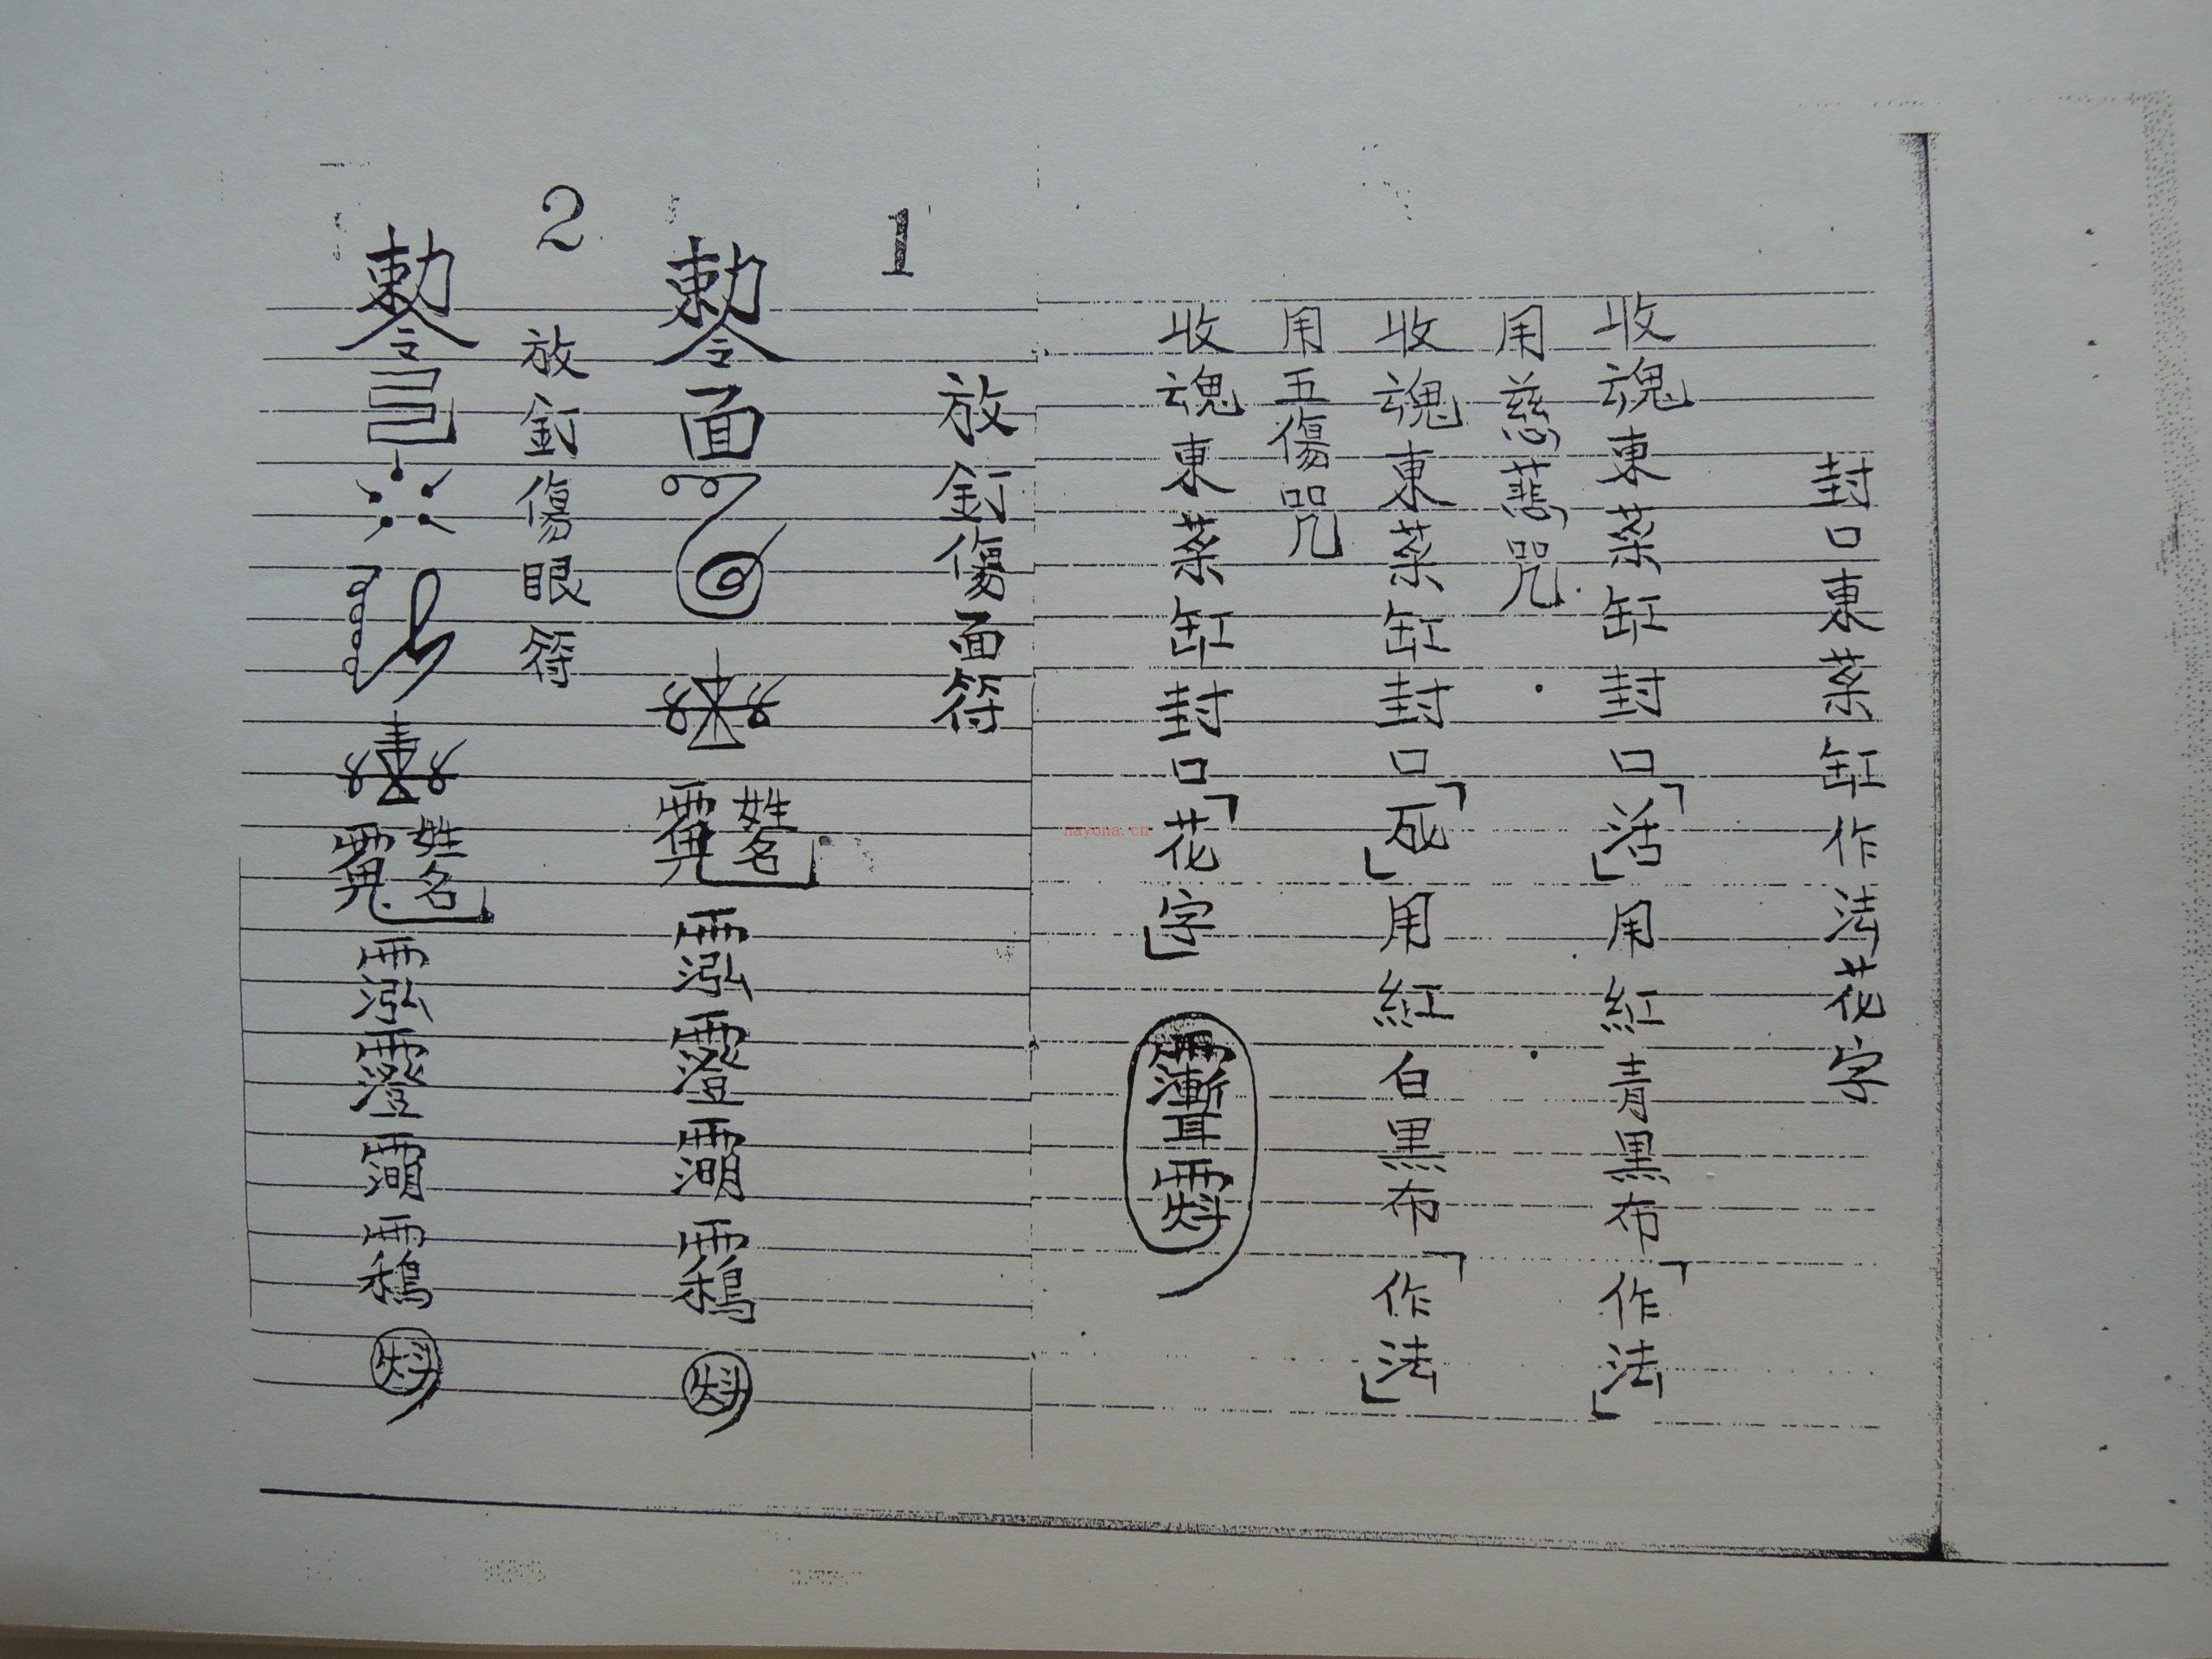 封口東菜缸作法花字
收魂東菜缸封口「活」用紅青黑布「作法」
用慈悲咒
收魂東菜缸封口「死」用紅白黑布「作法」
用五傷咒
收魂東菜缸封口「花字」
1
放釘傷面符
勅令面
姓名
2
放釘傷眼符
勅令
姓名
nayona.cn